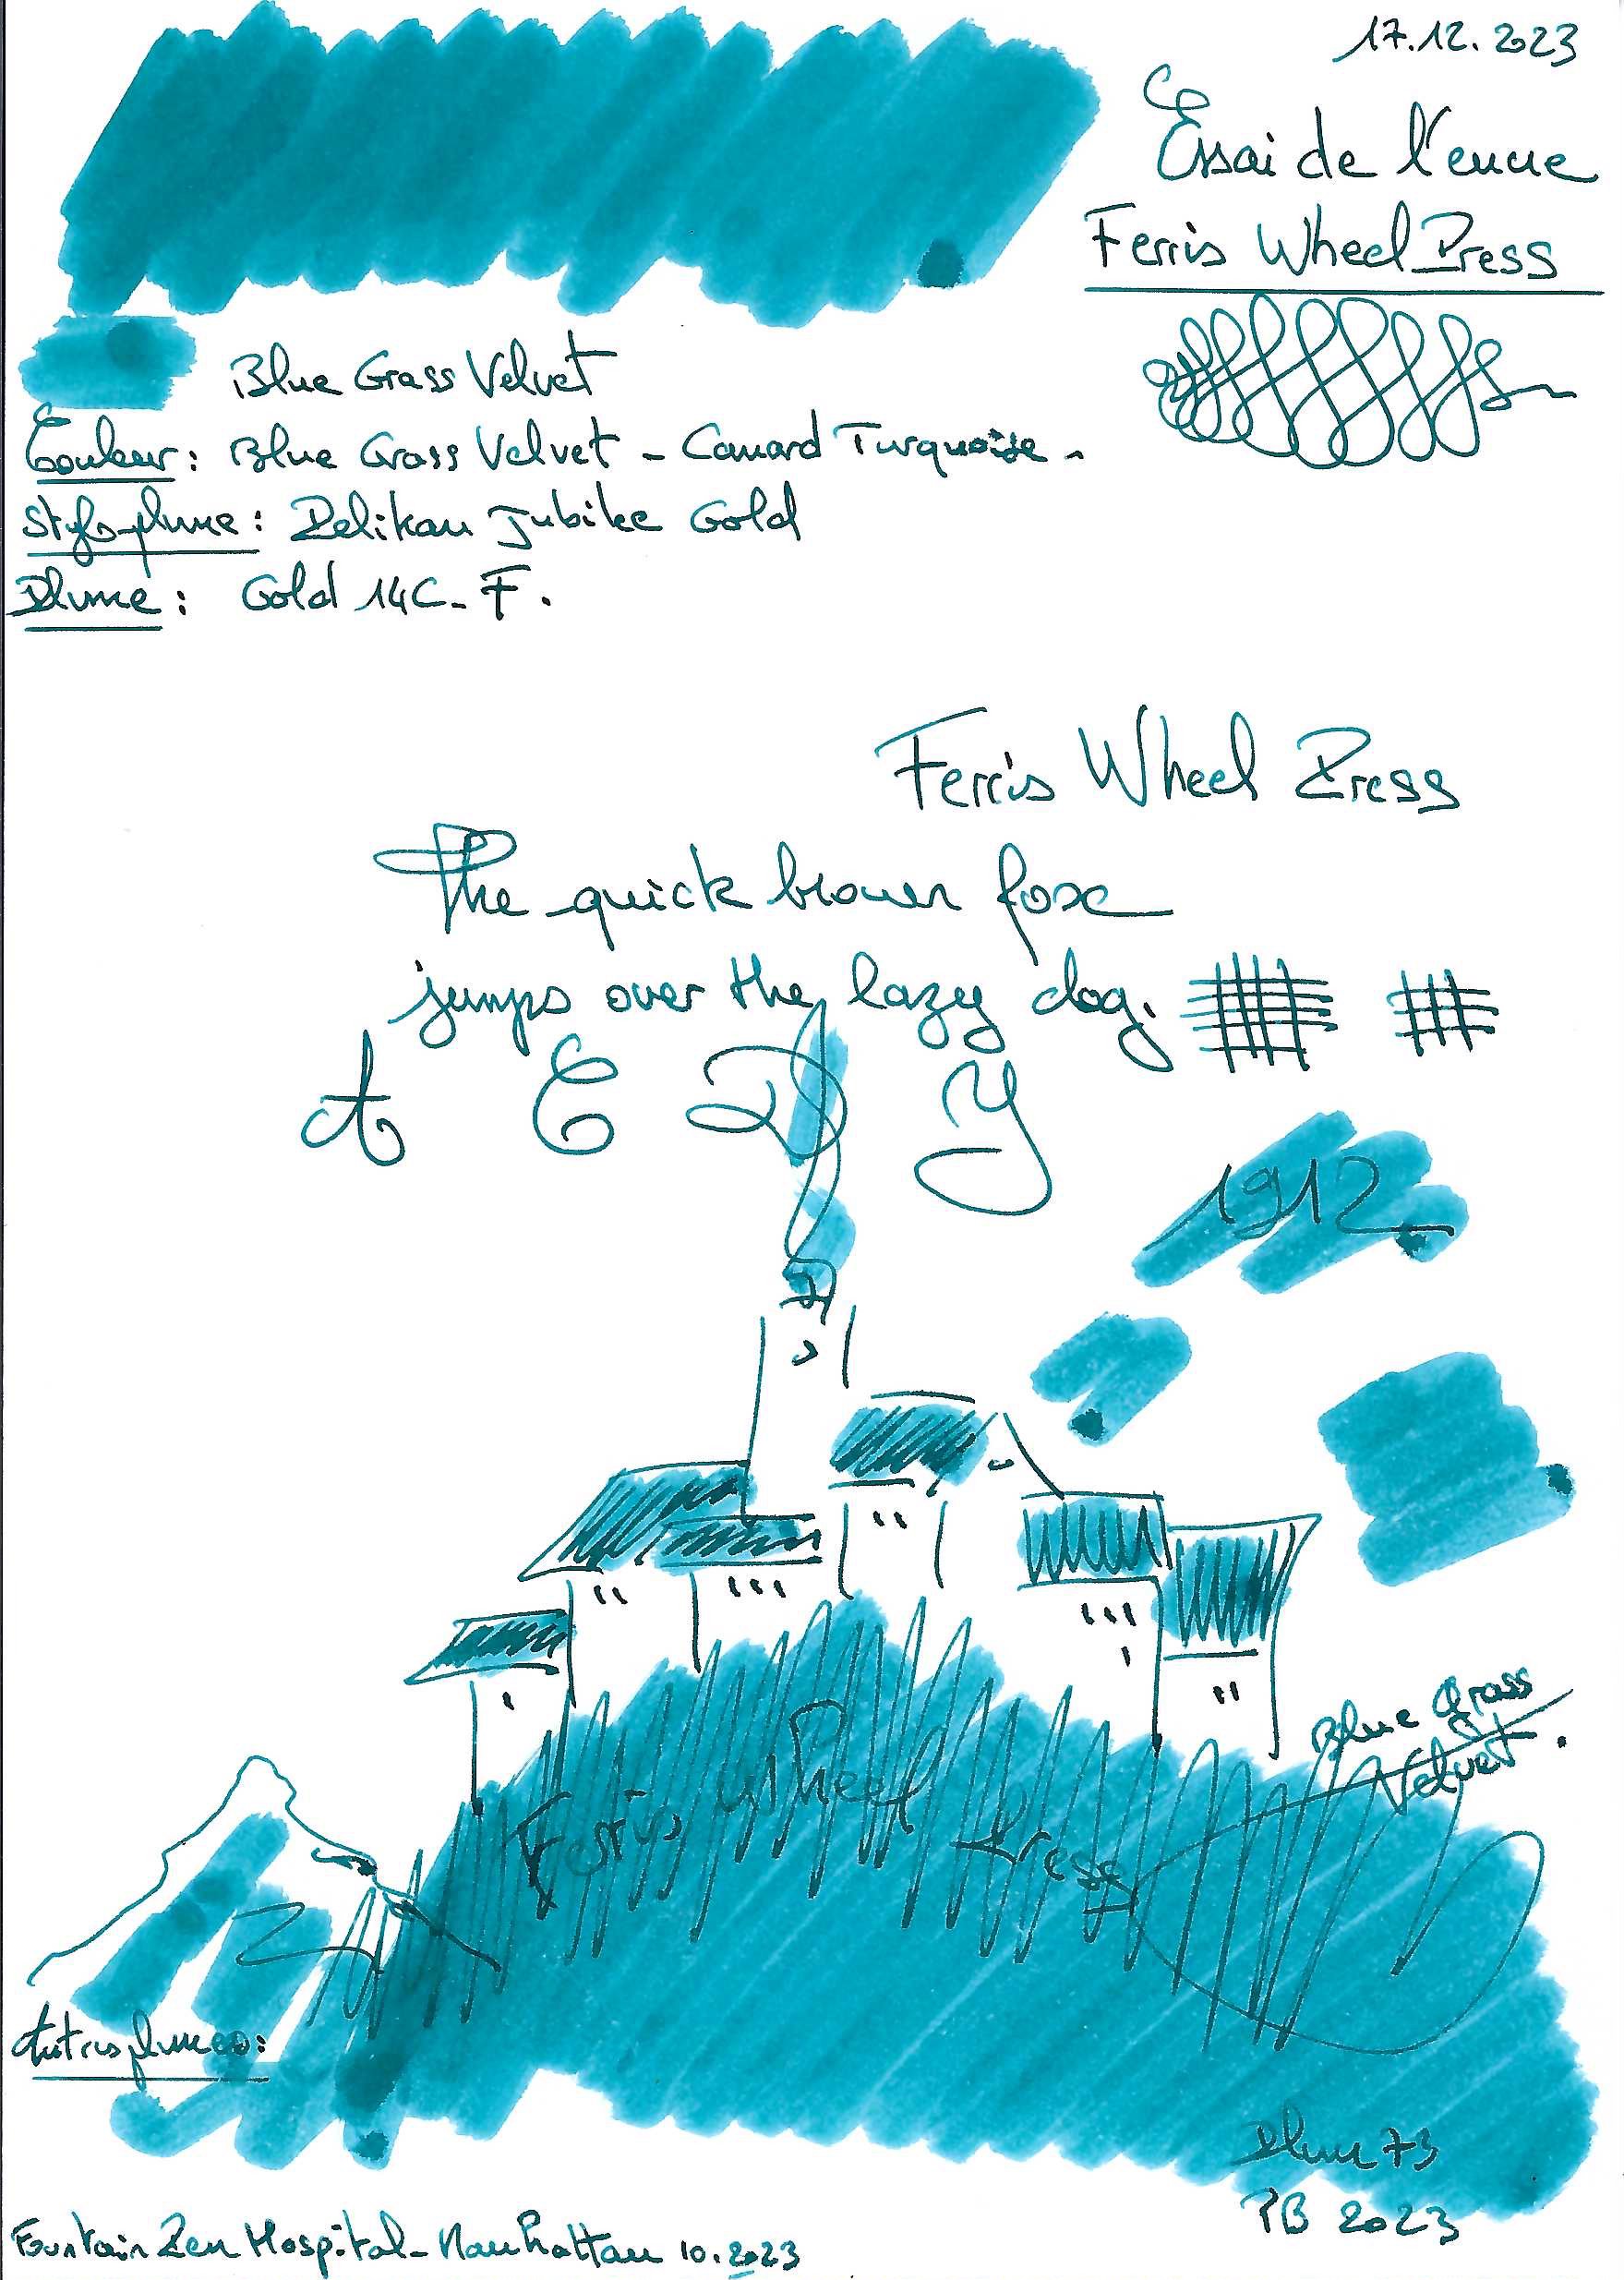 17.12.2023
Essai de l'encre
Ferris Wheel Press
Blue Grass Velvet
Couleur: Blue Grass Velvet - Canard Turquoise.
Stylo-plume: Pelikan Jubilee Gold
Plume: Gold 14C- F.
Ferris Wheel Press
The quick brown fox
jumps over the lazy dog.
A E D Y
1912
Blue Grass
Velvet.
Ferris Wheel Press
Autres plumes:
Plum 73
PB 2023
Fountain Pen Hospital - Manhattan 10.2023